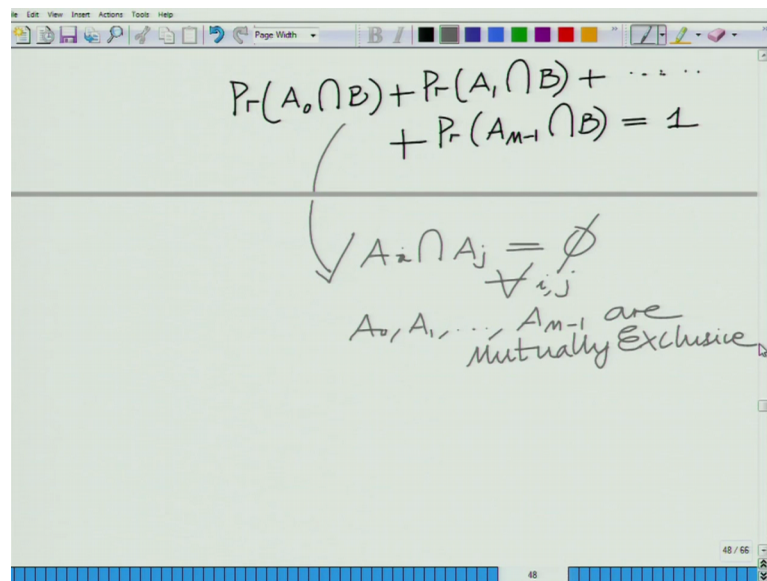 Edit View Insert Actions Tools Help
Page Width
B I
Pr(A₀∩B) + Pr(A₁∩B) + ......
+ Pr(A_{M-1}∩B) = 1
A_i ∩ A_j = ∅
∀ i,j
A₀, A₁, ..., A_{M-1} are
Mutually Exclusice
48 / 66
48